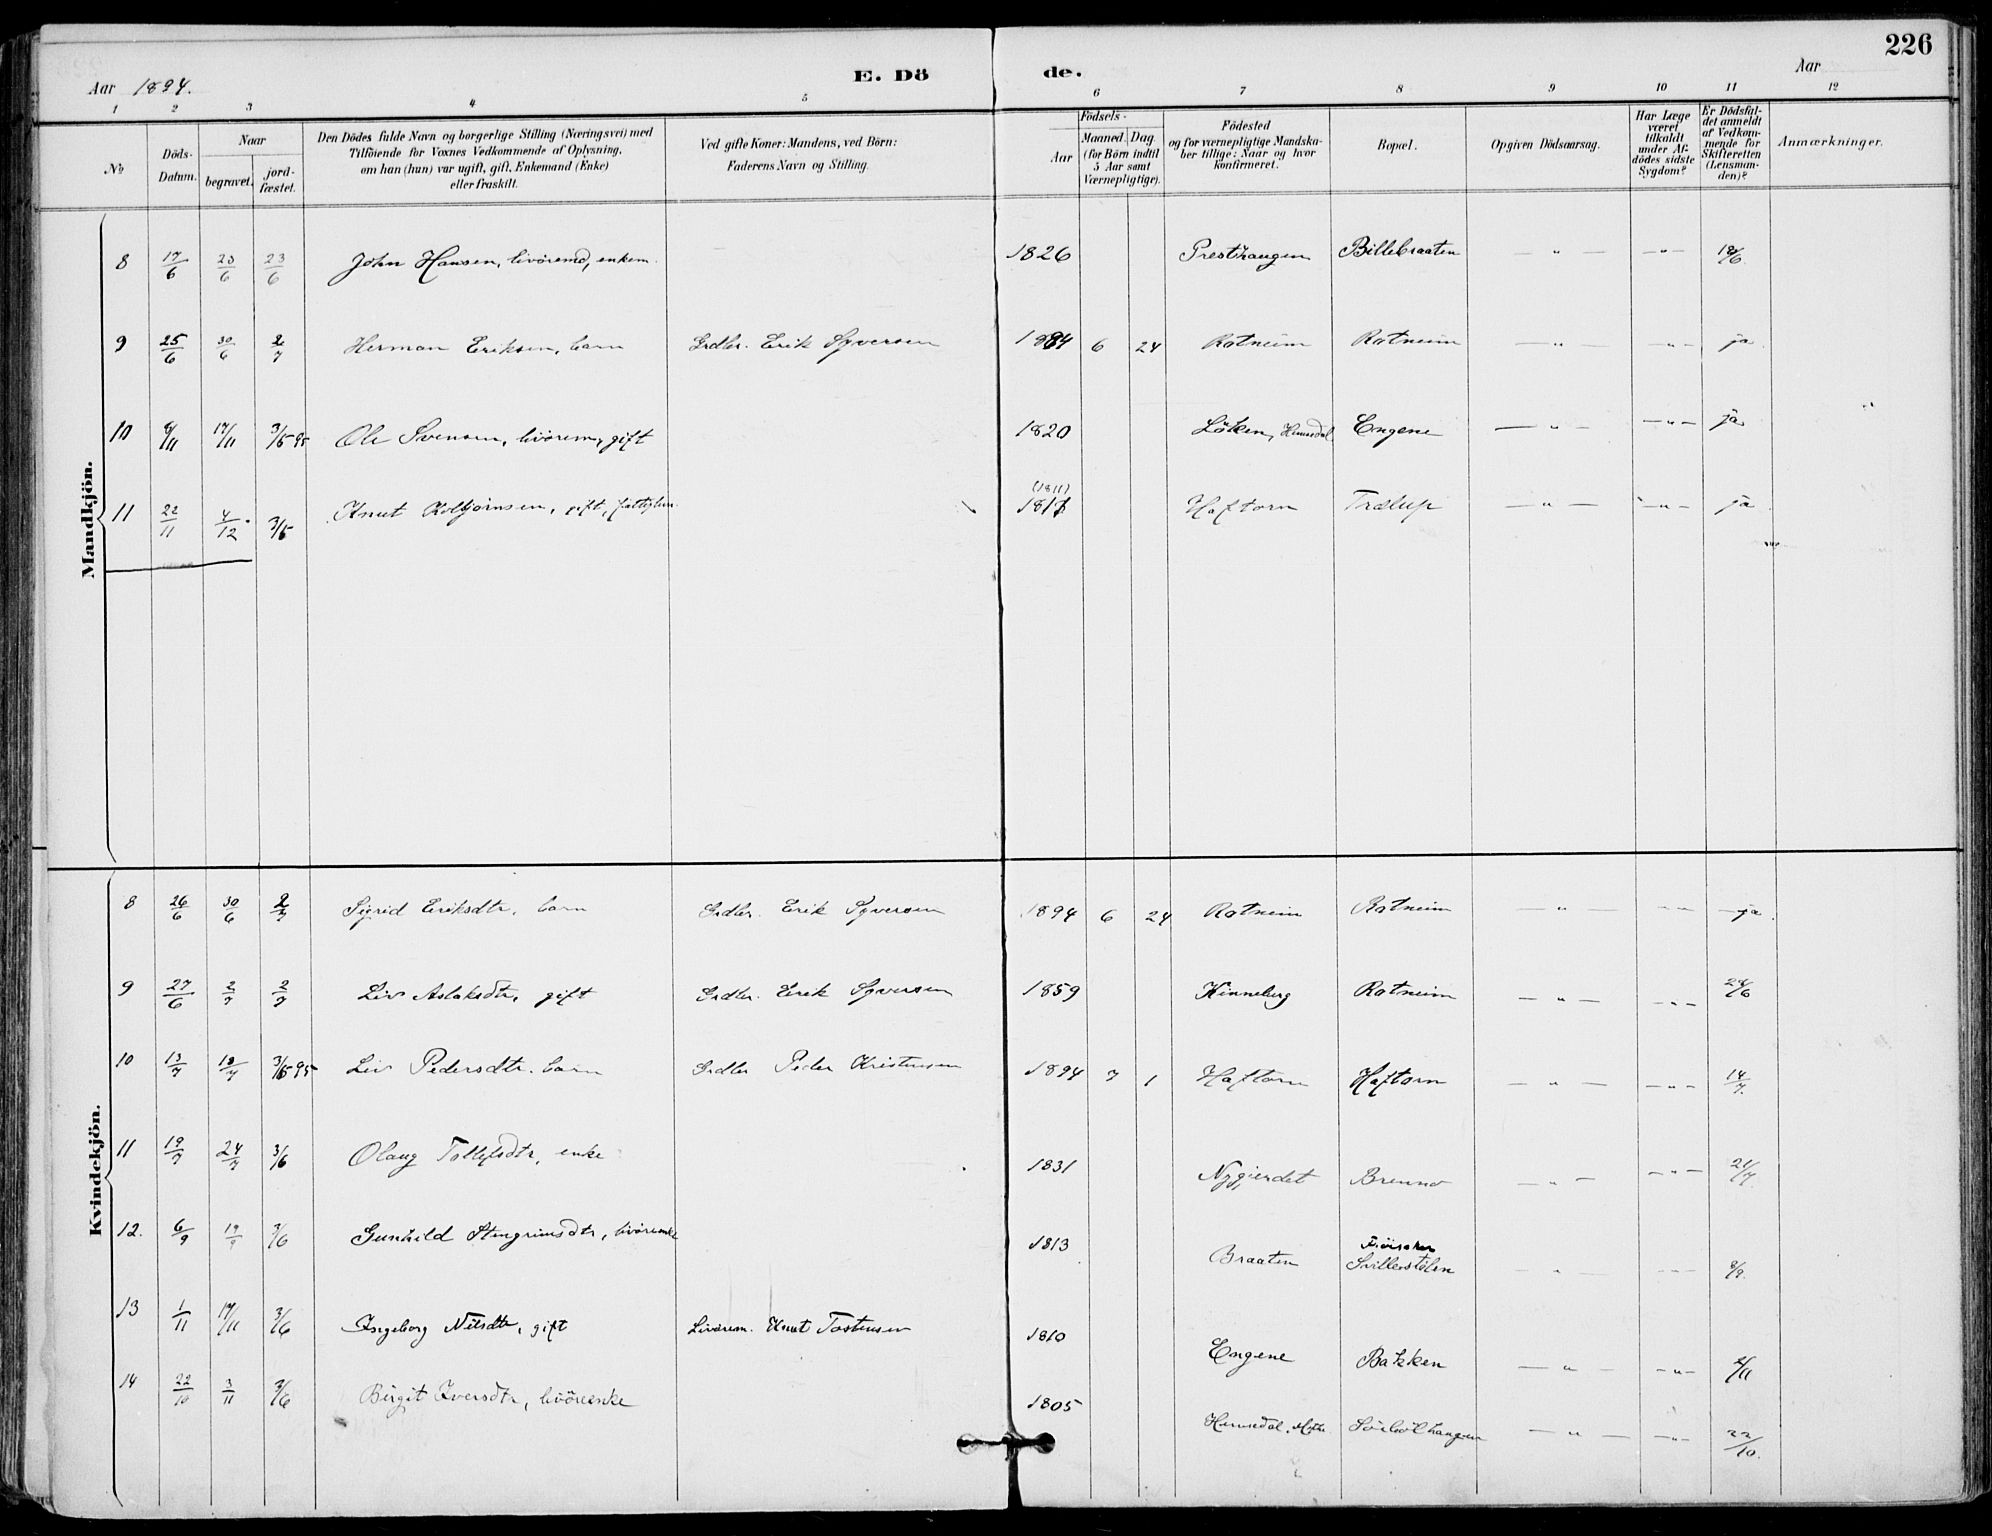 226
Aar 1894.
E. Döde.
Aar
1 2 3 4 5 6 7 8 9 10 11 12
No
Döds-Datum.
Naar
begravet.
jordfæstet.
Den Dödes fulde Navn og borgerlige Stilling (Næringsvei) med
Tilföiende for Voxnes Vedkommende af Oplysning,
om han (hun) var ugift, gift, Enkemand (Enke)
eller fraskilt.
Ved gifte Koner: Mandens, ved Börn:
Faderens Navn og Stilling.
Födsels-
Aar
Maaned. Dag.
(for Börn indtil
5 Aar samt
Værnepligtige).
Födested
og for værnepligtige Mandska-
ber tillige: Naar og hvor
konfirmeret.
Bopæl.
Opgiven Dödsaarsag.
Har Læge
været
tilkaldt
under Af-
dödes sidste
Sygdom?
Er Dödsfal-
det anmeldt
af Vedkom-
mende for
Skifteretten
(Lensman-
den)?
Anmærkninger.
Mandkjön.
8 17/6 23/6 23/6 John Hansen, livöremd, enkem. 1826 Presthaugen Billebraaten — " — — " — 18/6
9 25/6 30/6 2/7 Herman Eriksen, barn Grdbr. Erik Syversen 1894 6 24 Rotneim Rotneim — " — — " — ja.
10 8/11 17/11 3/6 95 Ole Svensen, livörem, gift 1820 Löken, Hemsedal Engene — " — — " — ja
11 22/11 4/12 3/6 Knut Kolbjörnsen, gift, fattiglem. (1811) 1817 Haftorn Trælup — " — — " — ja.
Kvindekjön.
8 26/6 30/6 2/7 Sigrid Eriksdtr, barn Grdbr. Erik Syversen 1894 6 24 Rotneim Rotneim — " — — " — ja.
9 27/6 2/7 2/7 Liv Aslaksdtr, gift Grdbr. Erik Syversen 1859 Kinneberg Rotneim — " — — " — 28/6
10 13/7 18/7 3/6 95 Liv Pedersdtr. barn Grdbr Peder Kristensen 1894 7 1 Haftorn Haftorn — " — — " — 14/7.
11 19/7 24/7 3/6 Olaug Tollefsdtr, enke 1831 Nygjerdet Brenno — " — — " — 21/7.
12. 6/9 19/9 3/6 Gunhild Stengrimsdtr, livörenke 1813 Braaten Svillerstölen — " — — " — 8/9.
13 1/11 17/11 3/6 Ingeborg Nilsdtr, gift Livörem. Knut Tostensen 1810 Engene Bakken — " — — " — 2/11
14 22/10 3/11 3/6 Birgit Iversdtr, livörenke 1805 Hemsedal. Söiböthaugen — " — — " — 22/10.